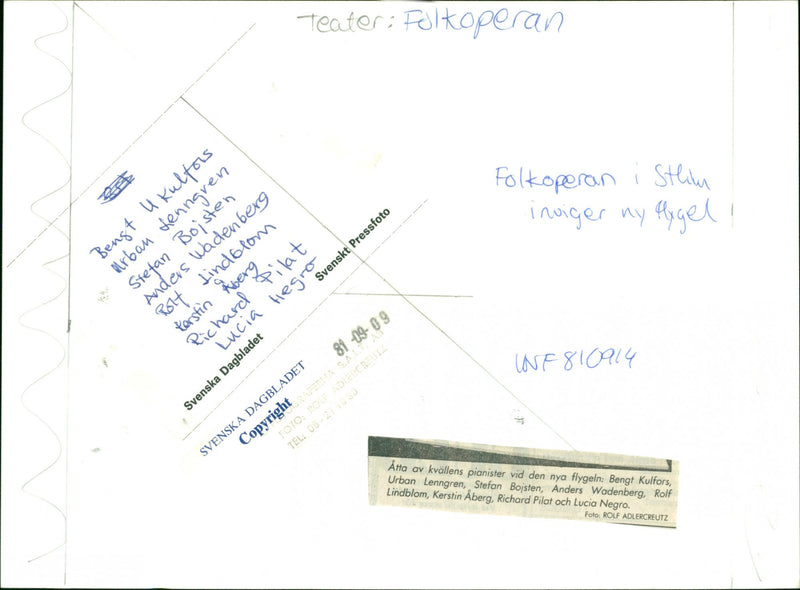 Teater: Folkoperan
Folkoperan i Sthlm
inviger ny flygel
Bengt U Kulfors
Urban Lenngren
Stefan Bojsten
Anders Wadenberg
Rolf Lindblom
Kerstin Åberg
Richard Pilat
Lucia Negro
Svenska Dagbladet
Svenskt Pressfoto
SVENSKA DAGBLADET
Copyright
81-09-09
FOTO: ROLF ADLERCREUTZ
INF 810914
Åtta av kvällens pianister vid den nya flygeln: Bengt Kulfors,
Urban Lenngren, Stefan Bojsten, Anders Wadenberg, Rolf
Lindblom, Kerstin Åberg, Richard Pilat och Lucia Negro.
Foto: ROLF ADLERCREUTZ